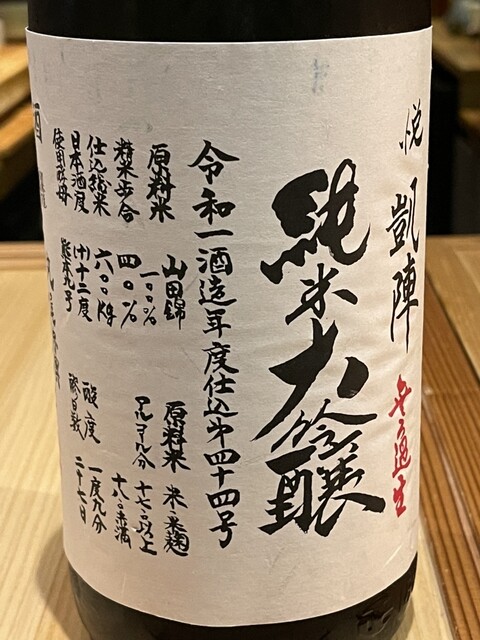 悦 凱陣 無濾過生
純米大吟醸
令和一酒造年度仕込第四十四号
原料米 山田錦 一〇〇% 原料米 米・米麹
精米歩合 四〇% アルコール分 十七・〇以上 十八・〇未満
仕込総米 六〇〇kg
日本酒度 (+)十二度 酸度 一度九分
使用酵母 熊本九号 醪日数 二十七日
酒